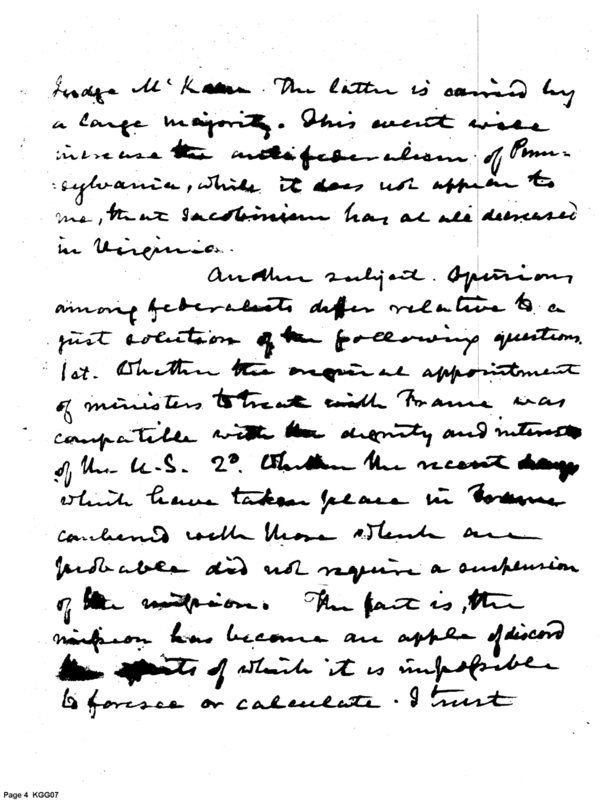 Judge McKean. The latter is carried by
a large majority. This event will
increase the antifederalism of Penn-
:sylvania, while it does not appear to
me, that Jacobinism has at all decreased
in Virginia.
Another subject. Opinions
among federalists differ relative to a
just solution of the following questions.
1st. Whether the original appointment
of ministers to treat with France was
compatible with the dignity and interest
of the U.S. 2d. Whether the recent
which have taken place in France
combined with those which are
probable did not require a suspension
of the mission. The fact is, the
mission has become an apple of discord
the effects of which it is impossible
to foresee or calculate. I trust
Page 4 KGG07